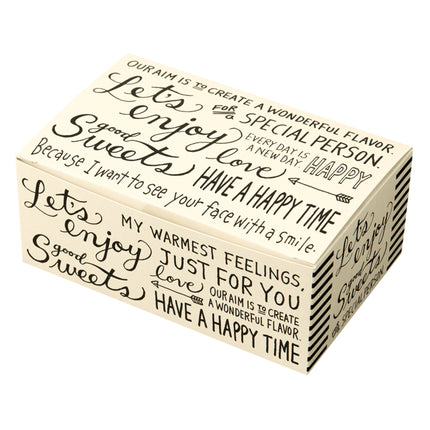 OUR AIM IS TO CREATE A WONDERFUL FLAVOR
Let's
enjoy
good
Sweets
FOR a SPECIAL PERSON.
love
EVERY DAY IS
A NEW DAY.
HAPPY
HAVE A HAPPY TIME
Because I want to see your face with a smile.
Let's
enjoy
good
Sweets
MY WARMEST FEELINGS,
JUST FOR YOU
love
OUR AIM IS TO CREATE
A WONDERFUL FLAVOR.
HAVE A HAPPY TIME
Let's
enjoy
good
Sweets
FOR a SPECIAL PERSON